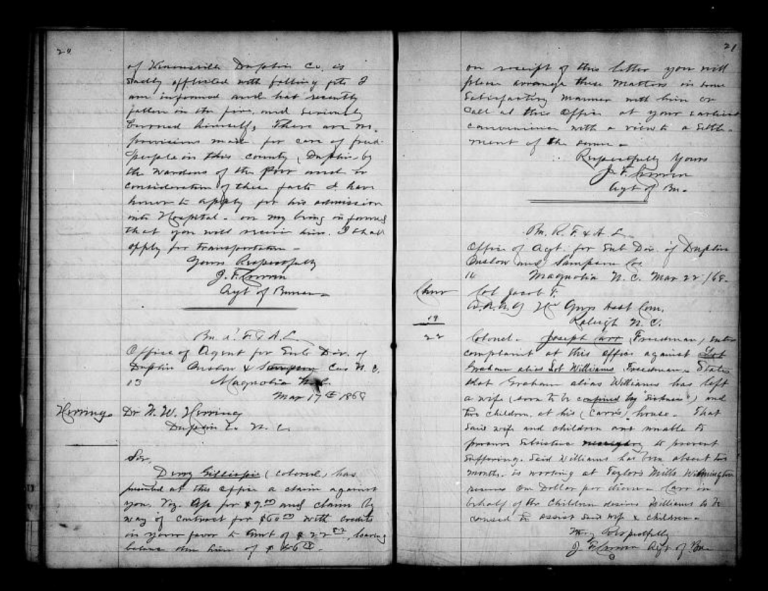 20
of Kenansville Duplin Co. is
sadly afflicted with falling fits I
am informed and has recently
fallen in the fire, and seriously
burned himself, There are no
provisions made for care of freed
people in this county (Duplin) by
the Wardens of the Poor and in
consideration of these facts I have
honor to apply for his admission
into Hospital. on my being informed
that you will receive him. I shall
apply for transportation -
Yours Respectfully
J. F.
Agt of Bureau
Bu R. F. & A. L.
Office of Agent for Sub Div. of
Duplin Onslow & Sampson Cos N. C.
13 Magnolia N.C.
Mar 17th 1868
Herring Dr N. W. Herring
Duplin Co. N. C.
Sir.
Gillispie (colored) has
presented at this office a claim against
you. Viz. for $9.00 and claim by
way of contract for $60.00 with credits
in your favor to amt of $22. leaving
balance due him of $
21
on receipt of this letter you will
please arrange these matters in some
satisfactory manner with him or
call at this office at your earliest
convenience with a view to a settle-
ment of the same -
Respectfully Yours
J. F.
Agt of Bu.
Bu. R. F. & A. L.
Office of Agt. for Sub Div. of Duplin
Onslow and Sampson Cos
Magnolia N. C. Mar 22/68.
Chur Col Jacob F.
Asst Com.
Raleigh N. C.
19
22 Colonel. Joseph Carr (Freedman) enters
complaint at this office against
Graham alias Williams Freedman - States
that Graham alias Williams has left
a wife (soon to be confined by sickness) and
children, at his (Carr's) house. That
said wife and children are unable to
to prevent
suffering. Said Williams has been absent two
months. is working at Taylors Mills Wilmington
receives one Dollar per diem - Carr in
behalf of the Children desires Williams to be
caused to assist said wife & children -
Very Respectfully
J. F. Agt of Bu.